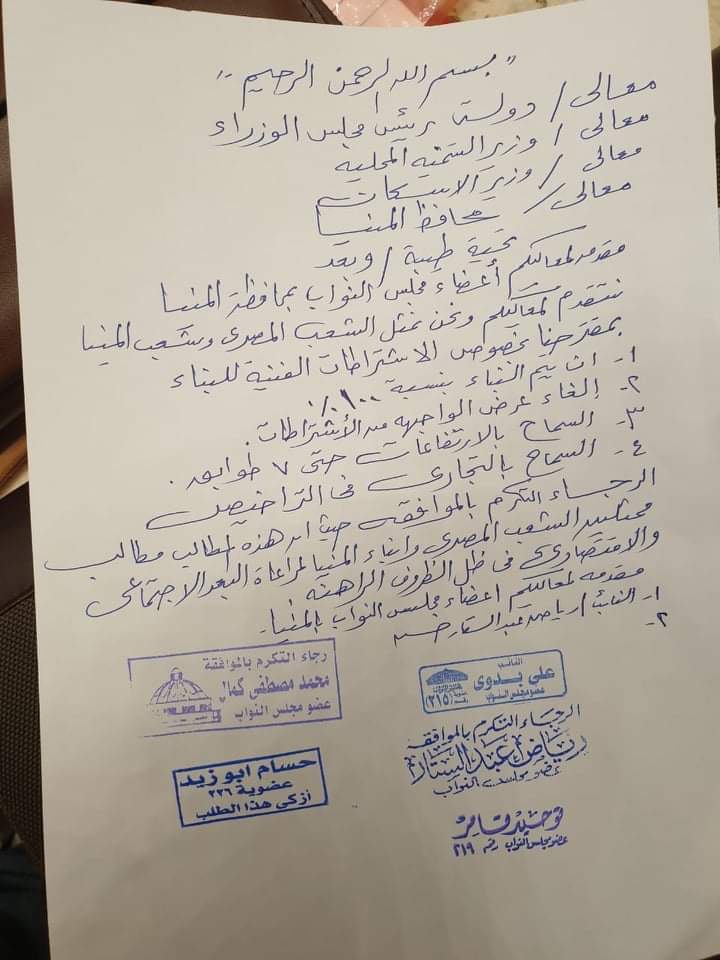 "بسم الله الرحمن الرحيم"
معالى / دولة رئيس مجلس الوزراء
معالى / وزير التنمية المحلية
معالى / وزير الاسكان
معالى / محافظ المنيا
تحية طيبة / وبعد
مقدمه لمعاليكم أعضاء مجلس النواب بمحافظة المنيا
نتقدم لمعاليكم ونحن نمثل الشعب المصرى وشعب المنيا
بمقترحنا بخصوص الاشتراطات الفنية للبناء
١- ان يتم البناء بنسبة ١٠٠٪
٢- إلغاء عرض الواجهه من الأشتراطات.
٣- السماح بالارتفاعات حتى ٧ طوابق.
٤- السماح بالتجارى فى التراخيص
الرجاء التكرم بالموافقه حيث ان هذه المطالب مطالب
ممثلين الشعب المصرى وابناء المنيا لمراعاة البعد الاجتماعى
والاقتصادى فى ظل الظروف الراهنه
مقدمه لمعاليكم اعضاء مجلس النواب بالمنيا.
١- النائب / رياض عبد الستار حسن
٢-
رجاء التكرم بالموافقة
محمد مصطفى كمال
عضو مجلس النواب
النائب
على بدوى
عضو مجلس النواب
(٢١٥)
الرجاء التكرم بالموافقه
رياض عبد الستار
عضو مجلس النواب
حسام ابو زيد
عضوية ٢٢٦
أزكى هذا الطلب
توحيد تامر
عضو مجلس النواب رقم ٢١٩